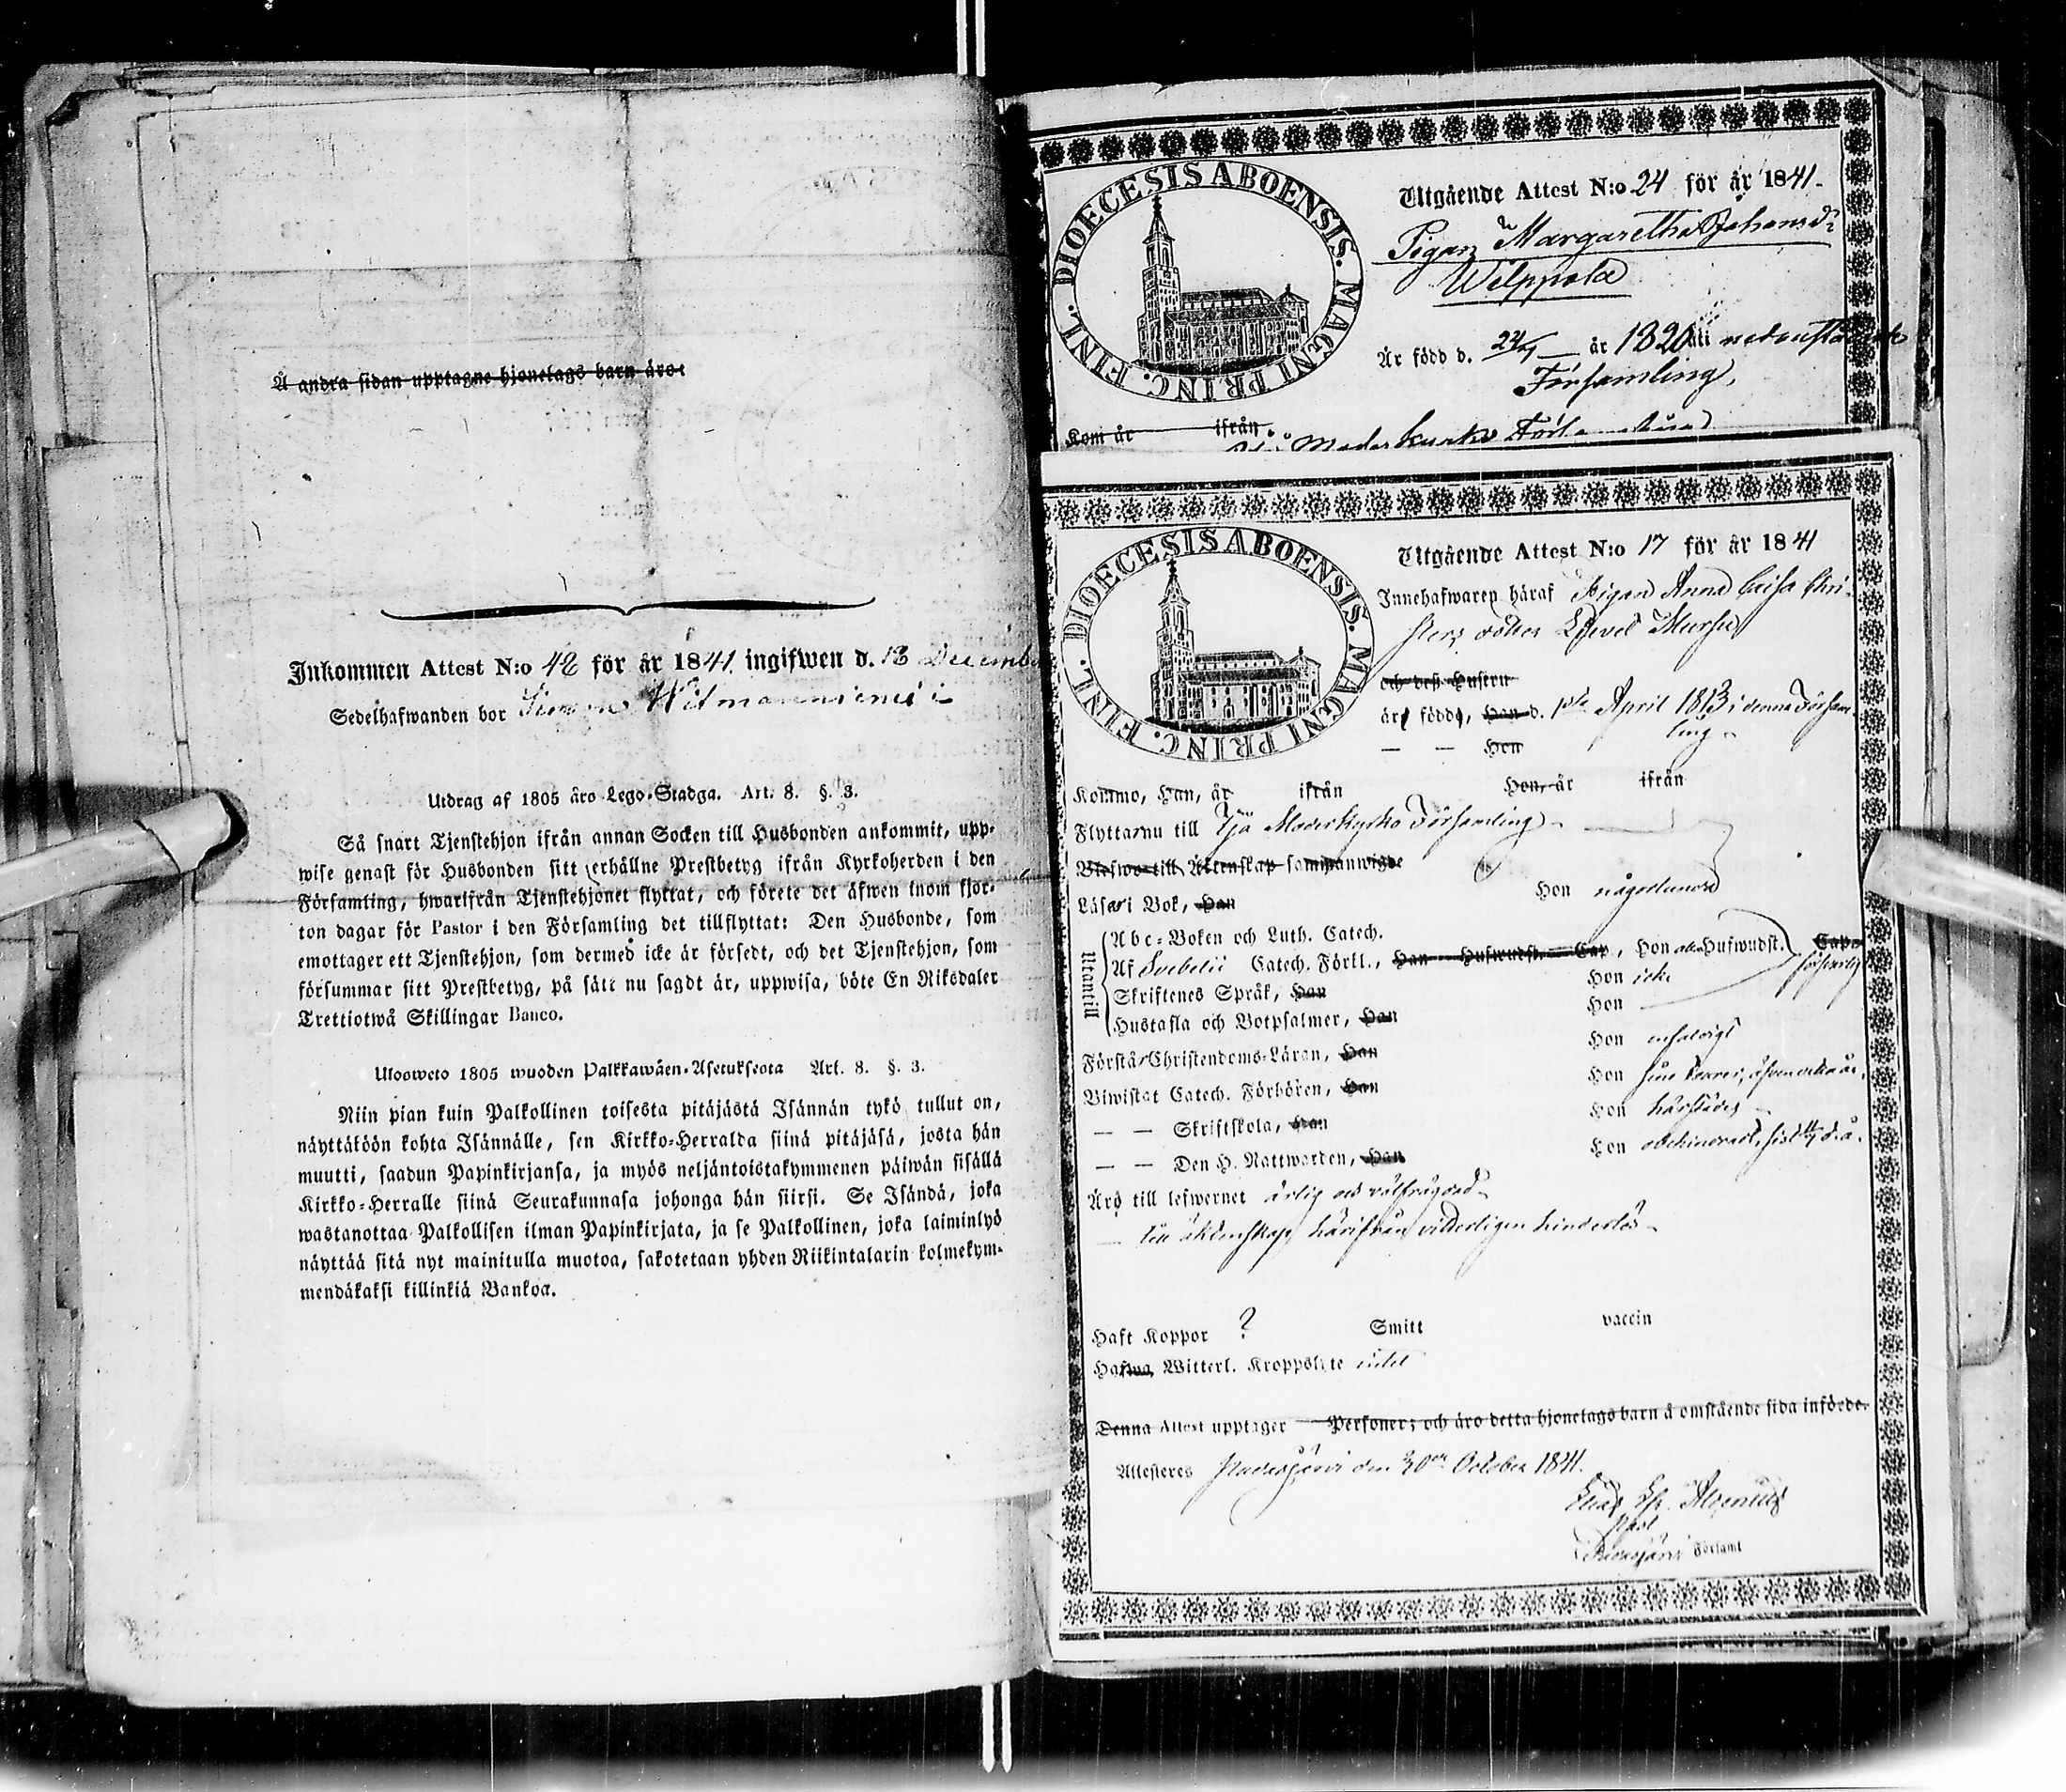 Å andra sidan upptagne hjonelags barn äro:
Inkommen Attest N:o 42 för år 1841 ingifwen d. 13 Decemb
Sedelhafwanden bor
Utdrag af 1805 års Lego-Stadga. Art. 8. §. 3.
Så snart Tjenstehjon ifrån annan Socken till Husbonden ankommit, upp-
wise genast för Husbonden sitt erhållne Prestbetyg ifrån Kyrkoherden i den
Församling, hwarifrån Tjenstehjonet flyttat, och förete det äfwen inom fjor-
ton dagar för Pastor i den Församling det tillflyttat: Den Husbonde, som
emottager ett Tjenstehjon, som dermed icke är försedt, och det Tjenstehjon, som
försummar sitt Prestbetyg, på sätt nu sagdt är, uppwisa, böte En Riksdaler
Trettiotwå Skillingar Banco.
Ulosweto 1805 wuoden Palkkawäen-Asetuksesta Art. 8. §. 3.
Niin pian kuin Palkollinen toisesta pitäjästä Isännän tykö tullut on,
näyttäköön kohta Isännälle, sen Kirkko-Herralda siinä pitäjäsä, josta hän
muutti, saadun Papinkirjansa, ja myös neljäntoistakymmenen päiwän sisällä
Kirkko-Herralle siinä Seurakunnasa johonga hän siirsi. Se Isändä, joka
wastanottaa Palkollisen ilman Papinkirjata, ja se Palkollinen, joka laiminlyö
näyttää sitä nyt mainitulla muotoa, sakotetaan yhden Riikintalarin kolmekym-
mendäkaksi killinkiä Bankoa.
DIOECESIS ABOENSIS. MAGNI PRINC. FINL.
Utgående Attest N:o 24 för år 1841.
Pigan Margaretha Johansdr
Wilppola
Är född d. 22/ år 1820 i nedenstående
Församling.
Kom år ifrån
Moderkyrko
DIOECESIS ABOENSIS. MAGNI PRINC. FINL.
Utgående Attest N:o 17 för år 1841
Innehafwaren häraf Pigan Anna Caisa Chri-
sters dotter
och dess Hustru
är född, Han d. April 1813 i denna Försam-
ling
— — Hon
Kommo, Han, år ifrån Hon, år ifrån
Flyttar nu till Moderkyrko Församling
Blefwo till Äktenskap sammanwigde
Läser i Bok, Han Hon någorlunda
Utantill
Abc-Boken och Luth. Catech.
Af Svebelii Catech. Förkl., Han Hufwudst. Cap, Hon alla Hufwudst. Cap.
Skriftenes Språk, Han Hon icke
Hustafla och Botpsalmer, Han Hon
Förstår Christendoms-Läran, Han Hon enfaldigt
Biwistat Catech. Förhören, Han Hon
— — Skriftskola, Han Hon härstädes
— — Den H. Nattwarden, Han Hon obehindrad, sist d. å.
Är till lefwernet ärlig och välfrägdad
— till äktenskap härifrån vitterligen hinderlös
Haft Koppor ? Smitt vaccin
Hafwa Witterl. Kroppslyte intet
Denna Attest upptager Personer; och äro detta hjonelags barn å omstående sida införde.
Attesteras Padasjoki den 30 October 1841.
Församl